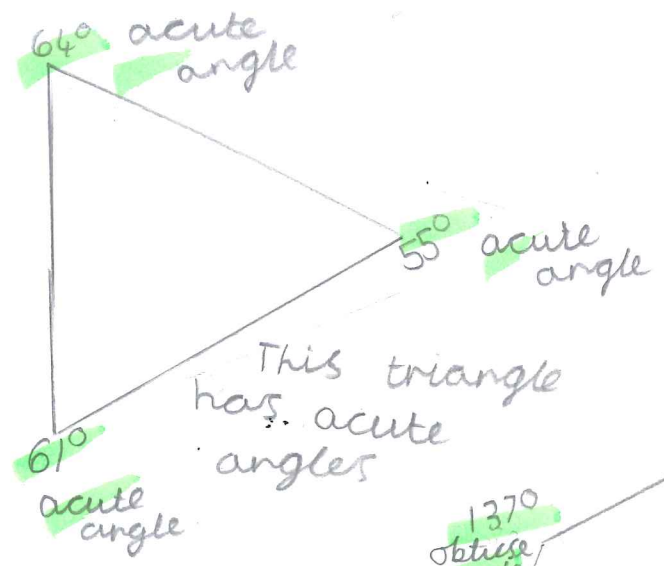 64° acute
angle
55° acute
angle
This triangle
has acute
angles
61°
acute
angle
137°
obtuse